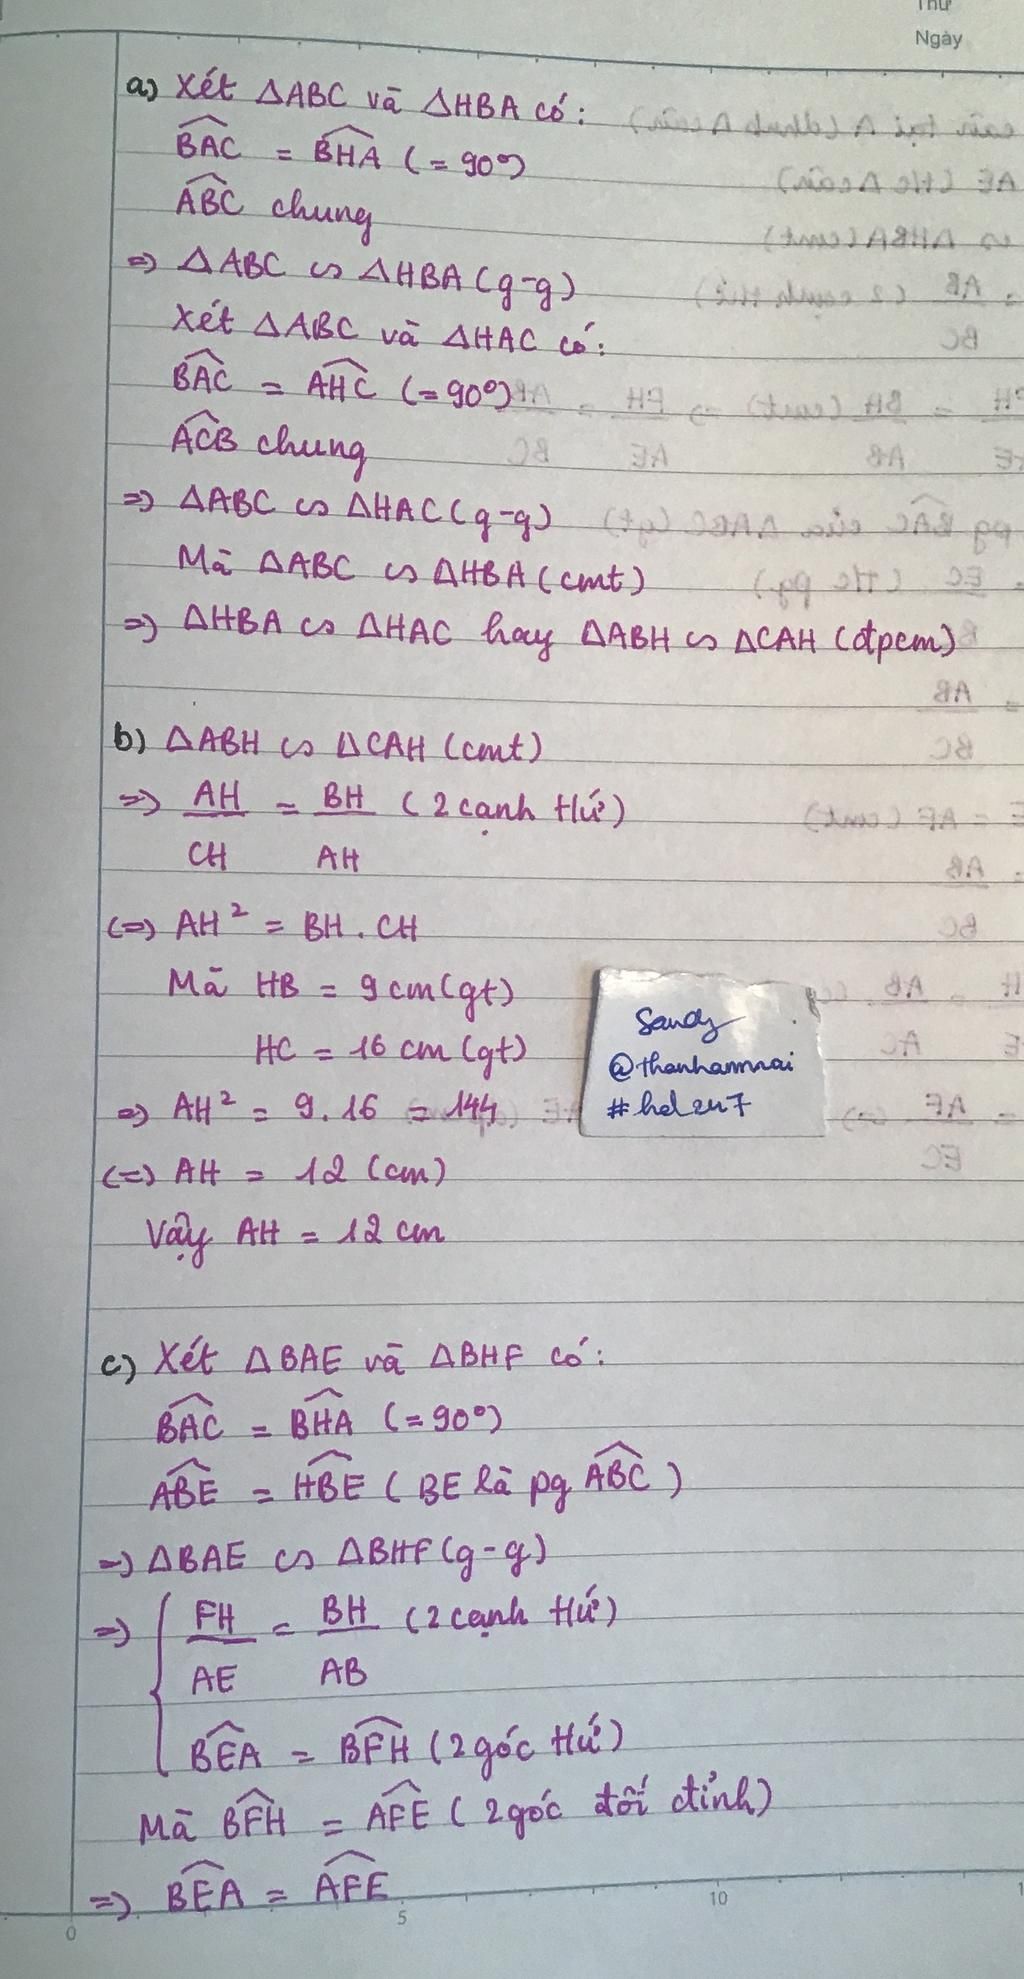 Thứ
Ngày
a) Xét ΔABC và ΔHBA có:
\widehat{BAC} = \widehat{BHA} (= 90°)
\widehat{ABC} chung
=> ΔABC ∽ ΔHBA (g-g)
Xét ΔABC và ΔHAC có:
\widehat{BAC} = \widehat{AHC} (= 90°)
\widehat{ACB} chung
=> ΔABC ∽ ΔHAC (g-g)
Mà ΔABC ∽ ΔHBA (cmt)
=> ΔHBA ∽ ΔHAC hay ΔABH ∽ ΔCAH (đpcm)
b) ΔABH ∽ ΔCAH (cmt)
=> AH/CH = BH/AH (2 cạnh tứ)
(=) AH² = BH . CH
Mà HB = 9 cm (gt)
HC = 16 cm (gt)
=> AH² = 9. 16 = 144
(=) AH = 12 (cm)
Vậy AH = 12 cm
Sandy
@thanhamnai
#hd247
c) Xét ΔBAE và ΔBHF có:
\widehat{BAC} = \widehat{BHA} (= 90°)
\widehat{ABE} = \widehat{HBE} (BE là pg \widehat{ABC})
=> ΔBAE ∽ ΔBHF (g-g)
=> { FH/AE = BH/AB (2 cạnh tứ)
\widehat{BEA} = \widehat{BFH} (2 góc tứ)
Mà \widehat{BFH} = \widehat{AFE} (2 góc đối đỉnh)
=> \widehat{BEA} = \widehat{AFE}
0 5 10